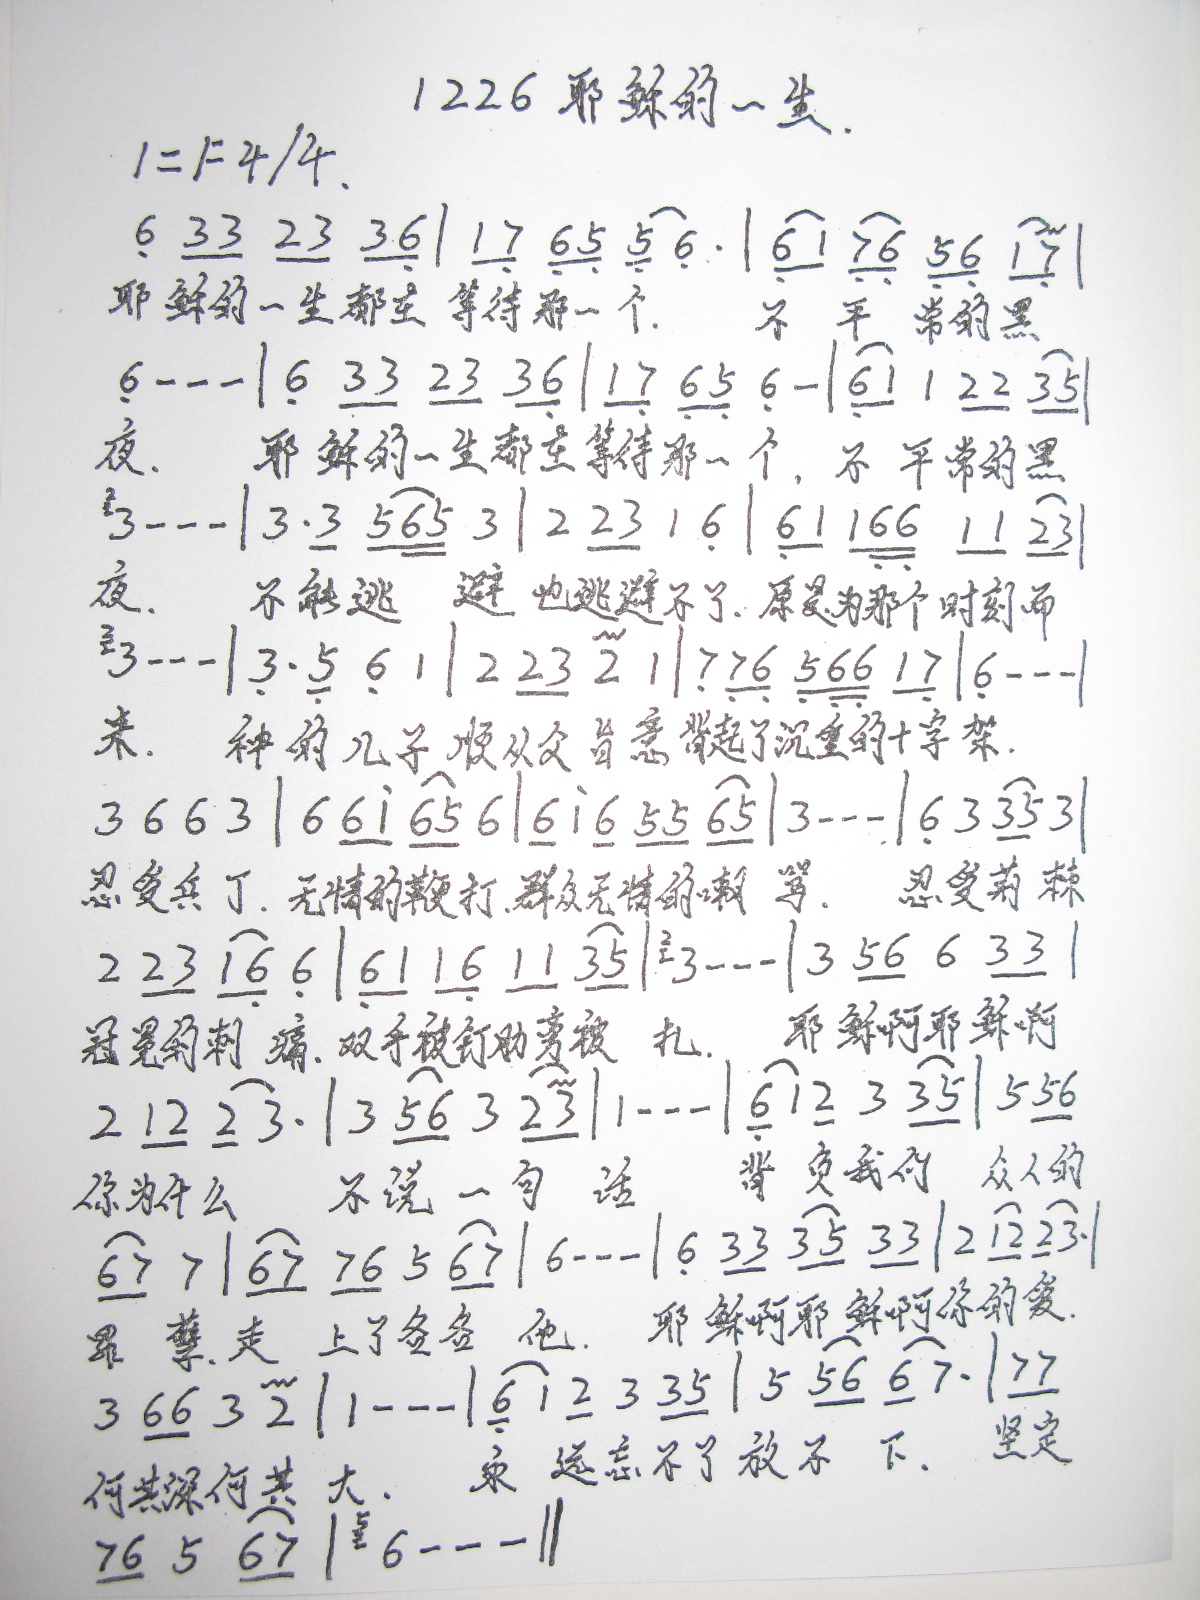 1226 耶稣的一生.
1=F 4/4.
6 33 23 36 | 17 65 5 6 · | 61 76 56 17 |
耶稣的一生都在等待那一个. 不平常的黑
6 - - - | 6 33 23 36 | 17 65 6 - | 61 1 22 35 |
夜. 耶稣的一生都在等待那一个, 不平常的黑
2 3 - - - | 3 · 3 565 3 | 2 23 1 6 | 61 166 11 23 |
夜. 不能逃避也逃避不了. 原是为那个时刻而
2 3 - - - | 3 · 5 6 1 | 2 23 2 1 | 7 76 566 17 | 6 - - - |
来. 神的儿子顺从父旨意背起了沉重的十字架.
3 6 6 3 | 6 6i 65 6 | 6 i 6 55 65 | 3 - - - | 6 3 35 3 |
忍受兵丁. 无情的鞭打. 群众无情的嘲骂. 忍受荊棘
2 23 16 6 | 61 16 11 35 | 2 3 - - - | 3 56 6 33 |
冠冕的刺痛. 双手被钉肋旁被扎. 耶稣啊耶稣啊
2 12 2 3 · | 3 56 3 23 | 1 - - - | 6 1 2 3 35 | 5 56
你为什么 不说一句话 背负我们众人的
67 7 | 67 76 5 67 | 6 - - - | 6 33 35 33 | 2 12 23 · |
罪孽. 走上了各各他. 耶稣啊耶稣啊你的爱.
3 66 3 2 | 1 - - - | 6 1 2 3 35 | 5 56 6 7 · | 77
何其深何其大. 永远忘不了放不下. 坚定
76 5 67 | 5 6 - - - ||